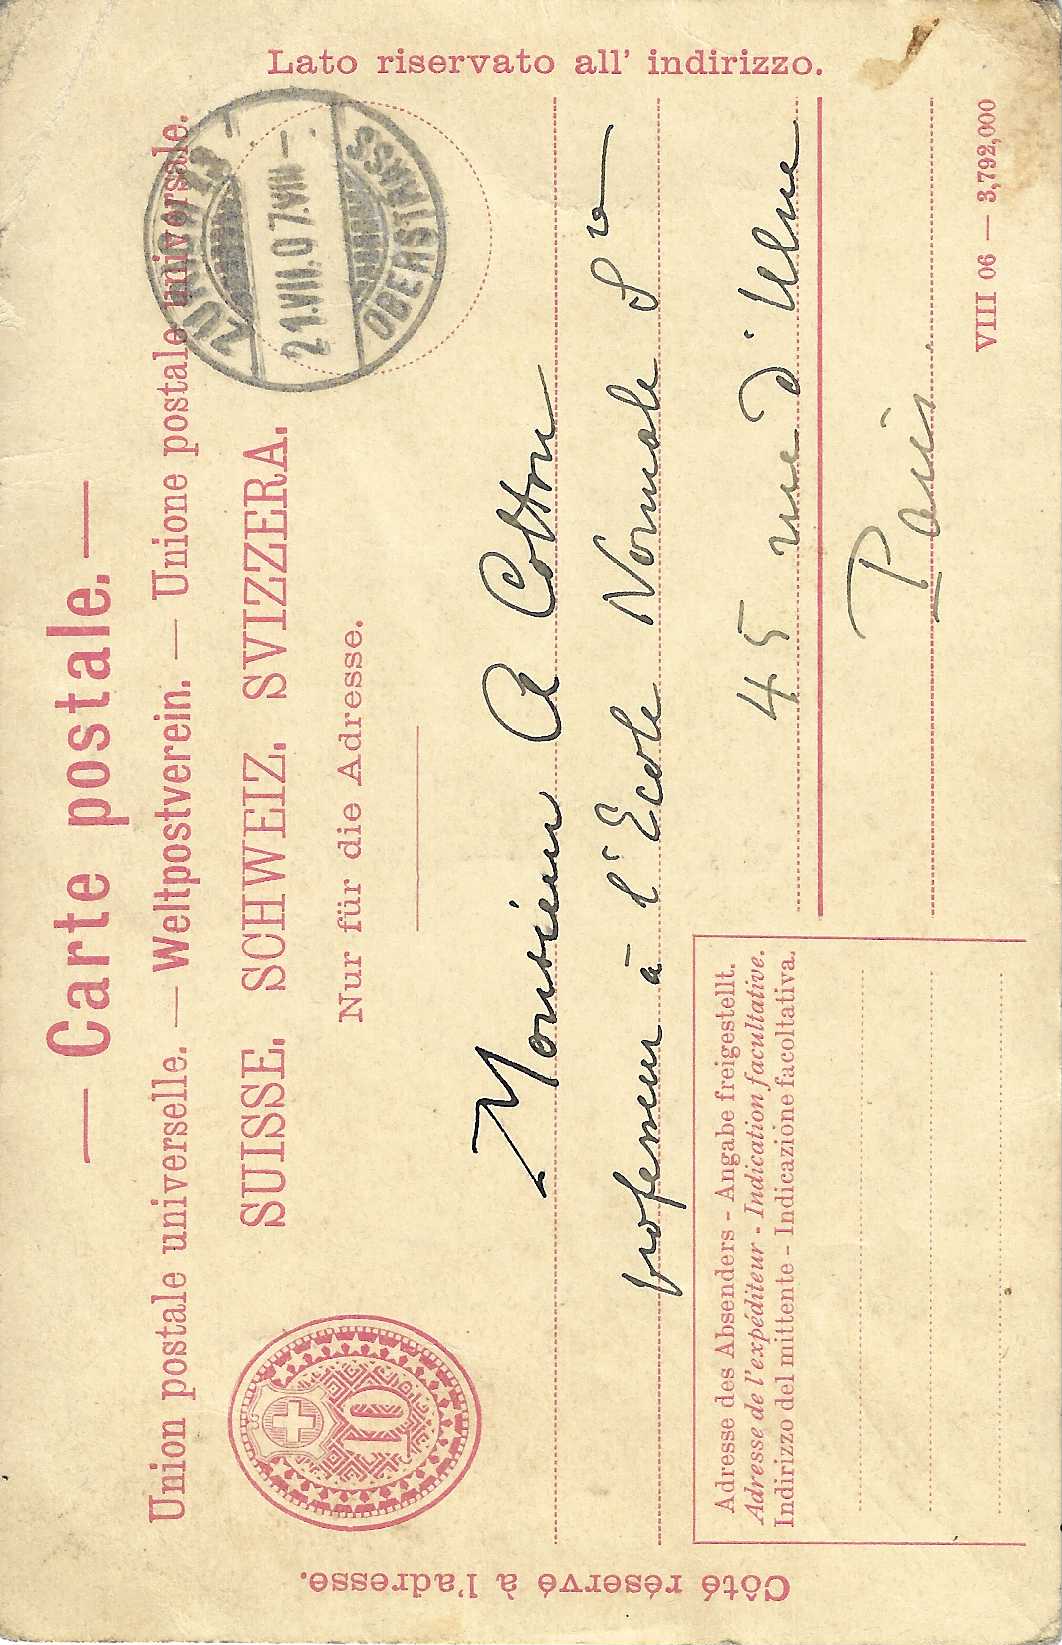 — Carte postale. —
Union postale universelle. — Weltpostverein. — Unione postale universale.
SUISSE. SCHWEIZ. SVIZZERA.
Nur für die Adresse.
Côté réservé à l'adresse.
Lato riservato all' indirizzo.
10
OBERSTRASS
21.VIII.07.VIII—
Monsieur A Cotton
professeur à l'Ecole Normale Sre
45 rue d'Ulm
Paris.
Adresse des Absenders - Angabe freigestellt.
Adresse de l'expéditeur - Indication facultative.
Indirizzo del mittente - Indicazione facoltativa.
VIII 06 — 3,792,000